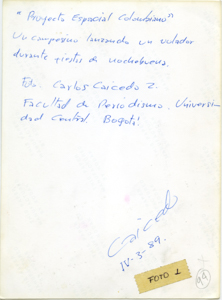 "Proyecto Espacial Colombiano"
Un campesino lanzando un volador
durante fiestas de nochebuena.
Foto. Carlos Caicedo Z.
Facultad de Periodismo. Universi-
dad Central. Bogotá.
Caicedo
IV-3-89.
FOTO 1